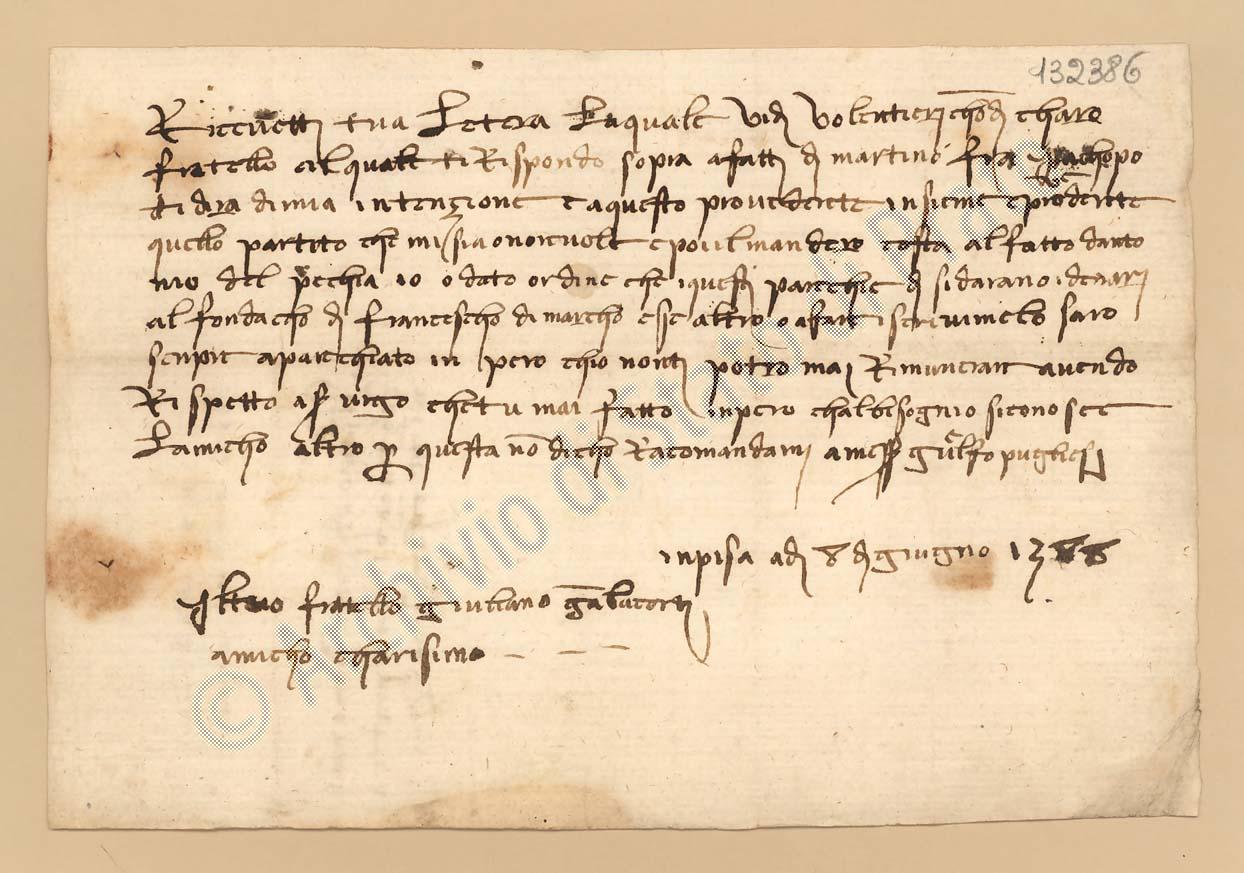 132386
Riccuetti tua Letera Laquale vidj volentierj chōdj charo
fratello alquale ti Rispondo sopra afatti dj martino fra Jachopo
ti dira dimia intenzione e aquesto provederete insieme e prēderete
quello partito che mi sia onorevole e poi lmandero costa al fatto danto
nio del pechia io o dato ordine che iquesti parechie dj si darano idenarj
al fondacho dj francescho di marcho esse altro o afare iscrivimelo saro
senpre aparechiato in pero chio nontj potro maj Rimunerare avendo
Rispetto a servigo chetu mai fatto inpero chalbisognio siconosce
Lamicho altro per questa nō dicho Racomandamj amess guelfo pugliesj
inpisa adj 8 dj giugno 1388
Iltuo fratello giuliano gābacortj
amicho charisimo
© Archivio di Stato di Prato